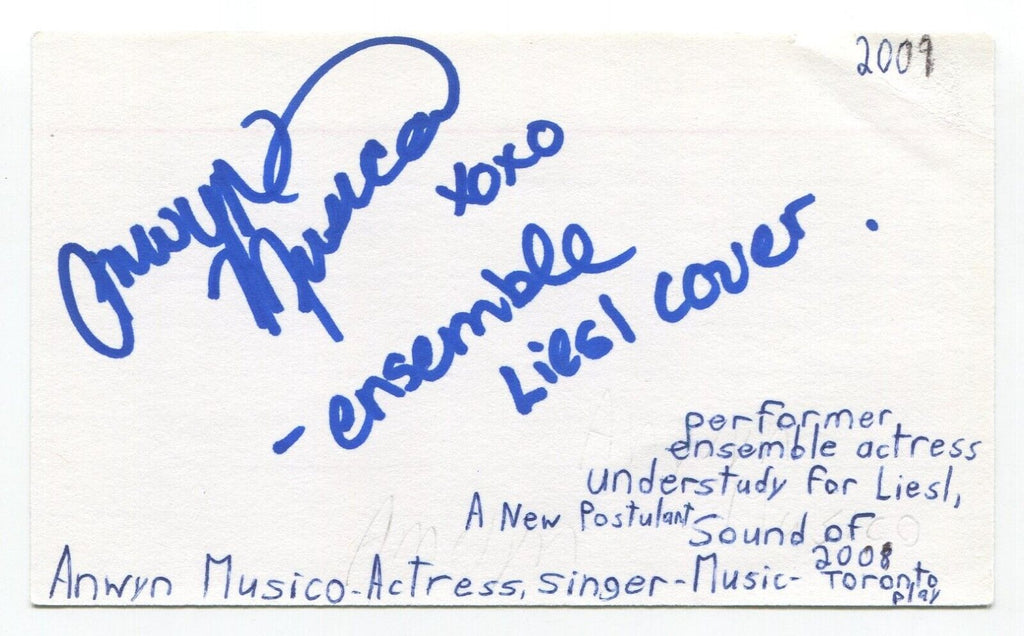 2009
Anwyn Musico
xoxo
- ensemble
Liesl cover .
performer,
ensemble actress
understudy for Liesl,
A New Postulant
Sound of
2008
Anwyn Musico-Actress, singer-Music- Toronto
play